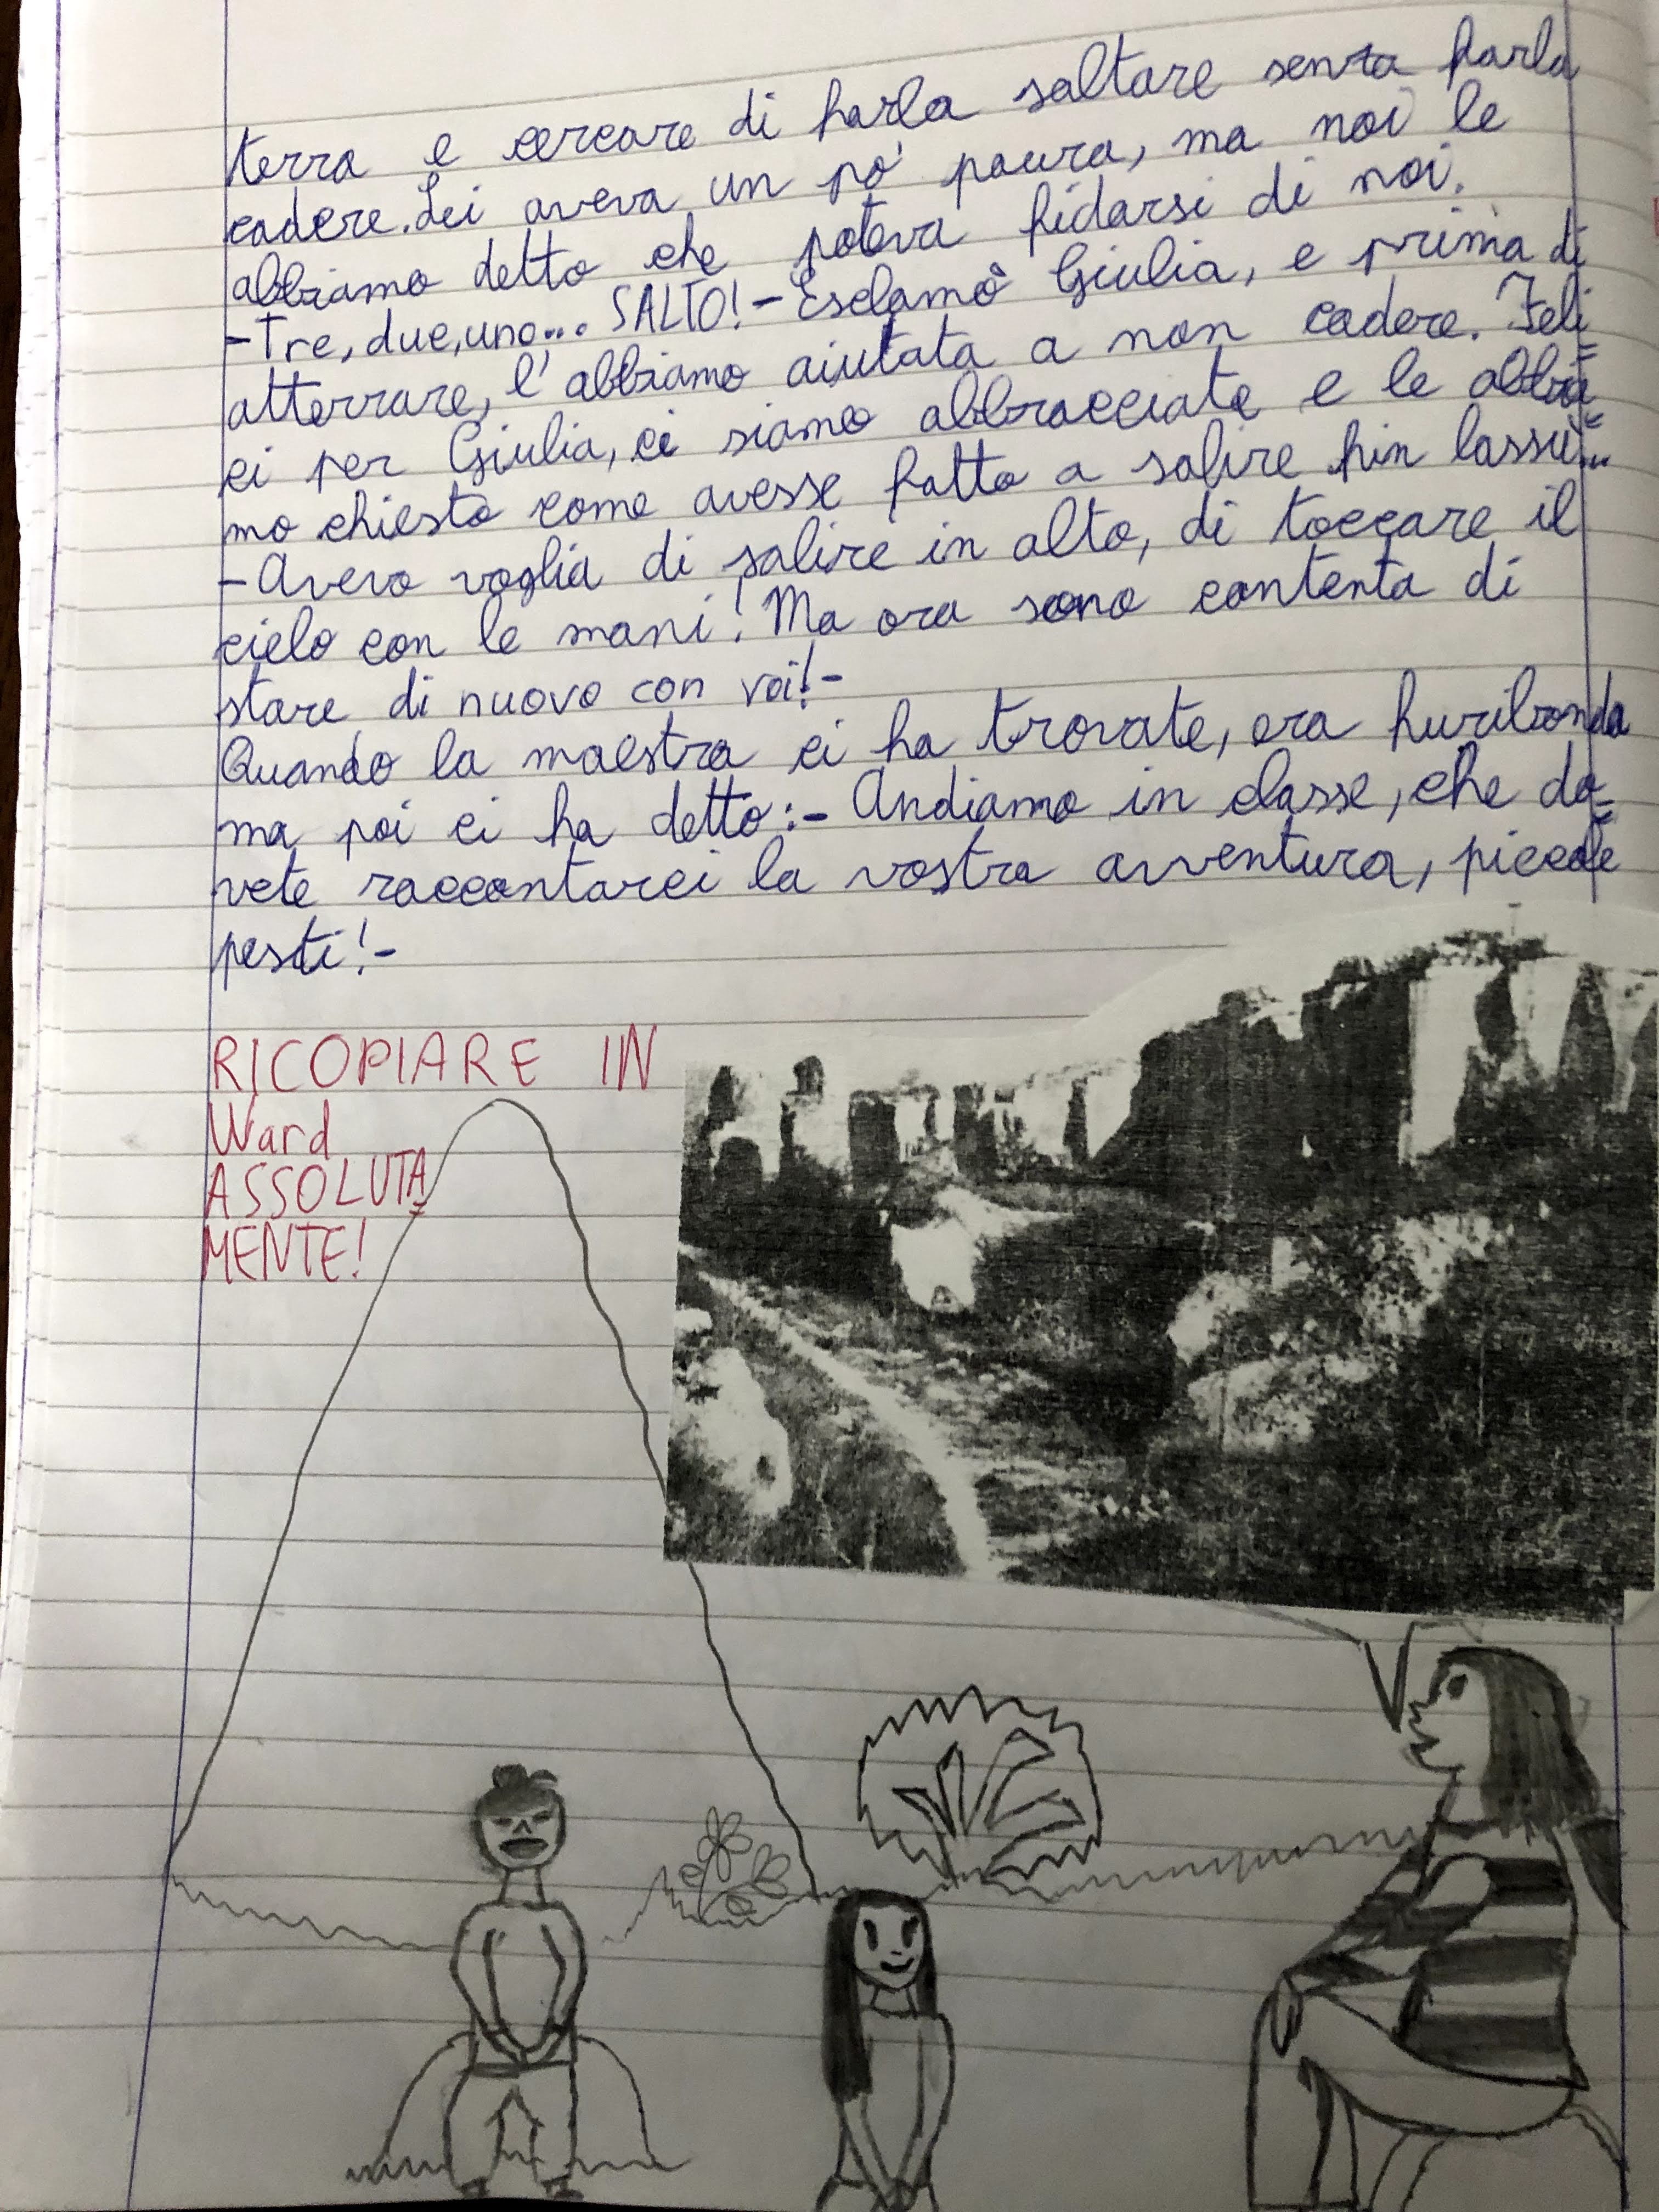 terra e cercare di farla saltare senza farla
cadere. Lei aveva un pò paura, ma noi le
abbiamo detto che poteva fidarsi di noi.
-Tre, due, uno... SALTO!- Esclamò Giulia, e prima di
atterrare, l'abbiamo aiutata a non cadere. Feli=
ci per Giulia, ci siamo abbracciate e le abbia=
mo chiesto come avesse fatto a salire fin lassù...
-Avevo voglia di salire in alto, di toccare il
cielo con le mani! Ma ora sono contenta di
stare di nuovo con voi!-
Quando la maestra ci ha trovate, era furibonda
ma poi ci ha detto:- Andiamo in classe, che do=
vete raccontarci la vostra avventura, piccole
pesti!-
RICOPIARE IN
Word
ASSOLUTA=
MENTE!